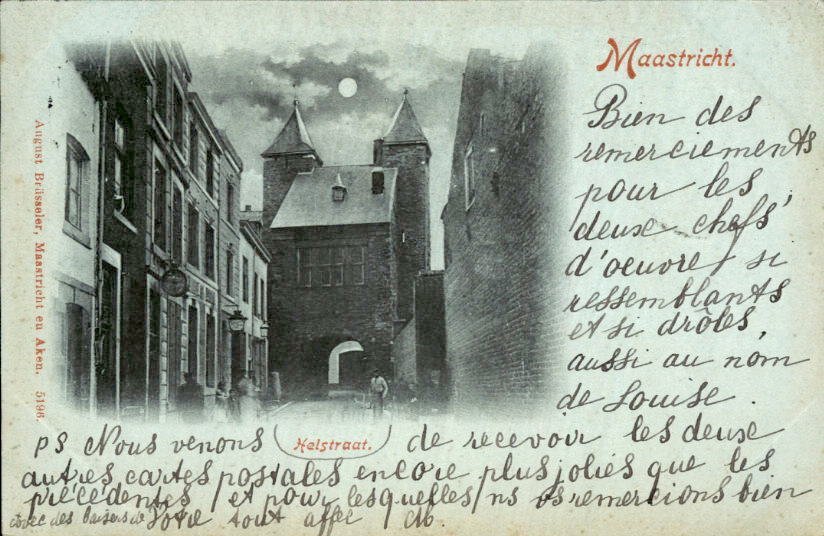 Maastricht.
Bien des
remerciements
pour les
deux chefs'
d'oeuvre si
ressemblants
et si drôles,
aussi au nom
de Louise.
Helstraat.
ps Nous venons de recevoir les deux
autres cartes postales encore plus jolies que les
précédentes, et pour lesquelles ns vs remercions bien
avec des baisers de Votre tout affec
August Brüsseler, Maastricht en Aken. 5196.